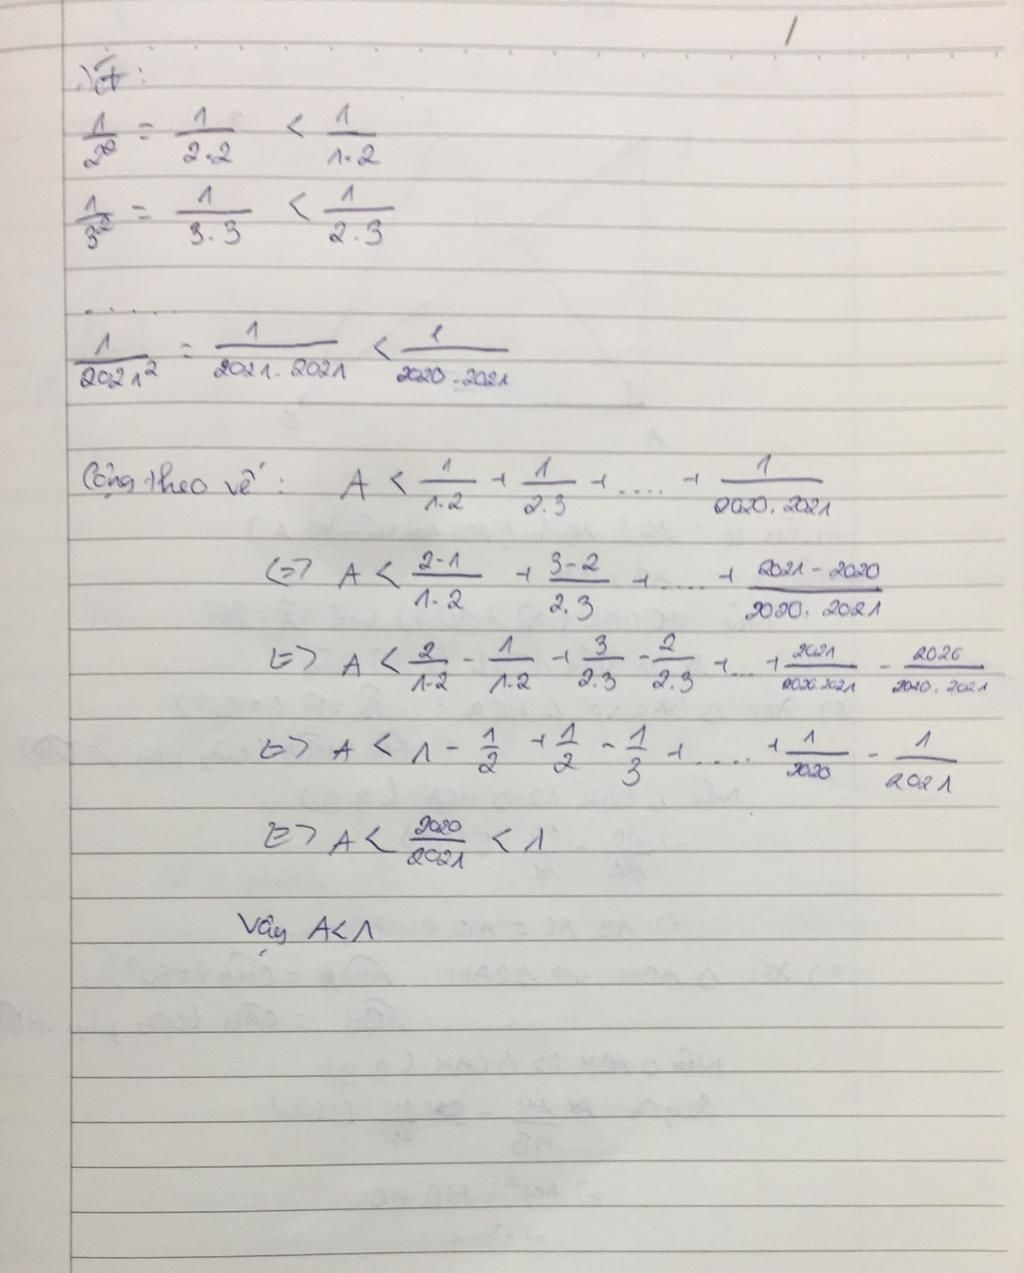 Xét:
1/2² = 1/2.2 < 1/1.2
1/3² = 1/3.3 < 1/2.3
......
1/2021² = 1/2021.2021 < 1/2020.2021
Cộng theo vế: A < 1/1.2 + 1/2.3 + .... + 1/2020.2021
<=> A < 2-1/1.2 + 3-2/2.3 + .... + 2021-2020/2020.2021
<=> A < 2/1.2 - 1/1.2 + 3/2.3 - 2/2.3 + ... + 2021/2020.2021 - 2020/2020.2021
<=> A < 1 - 1/2 + 1/2 - 1/3 + .... + 1/2020 - 1/2021
<=> A < 2020/2021 < 1
Vậy A < 1